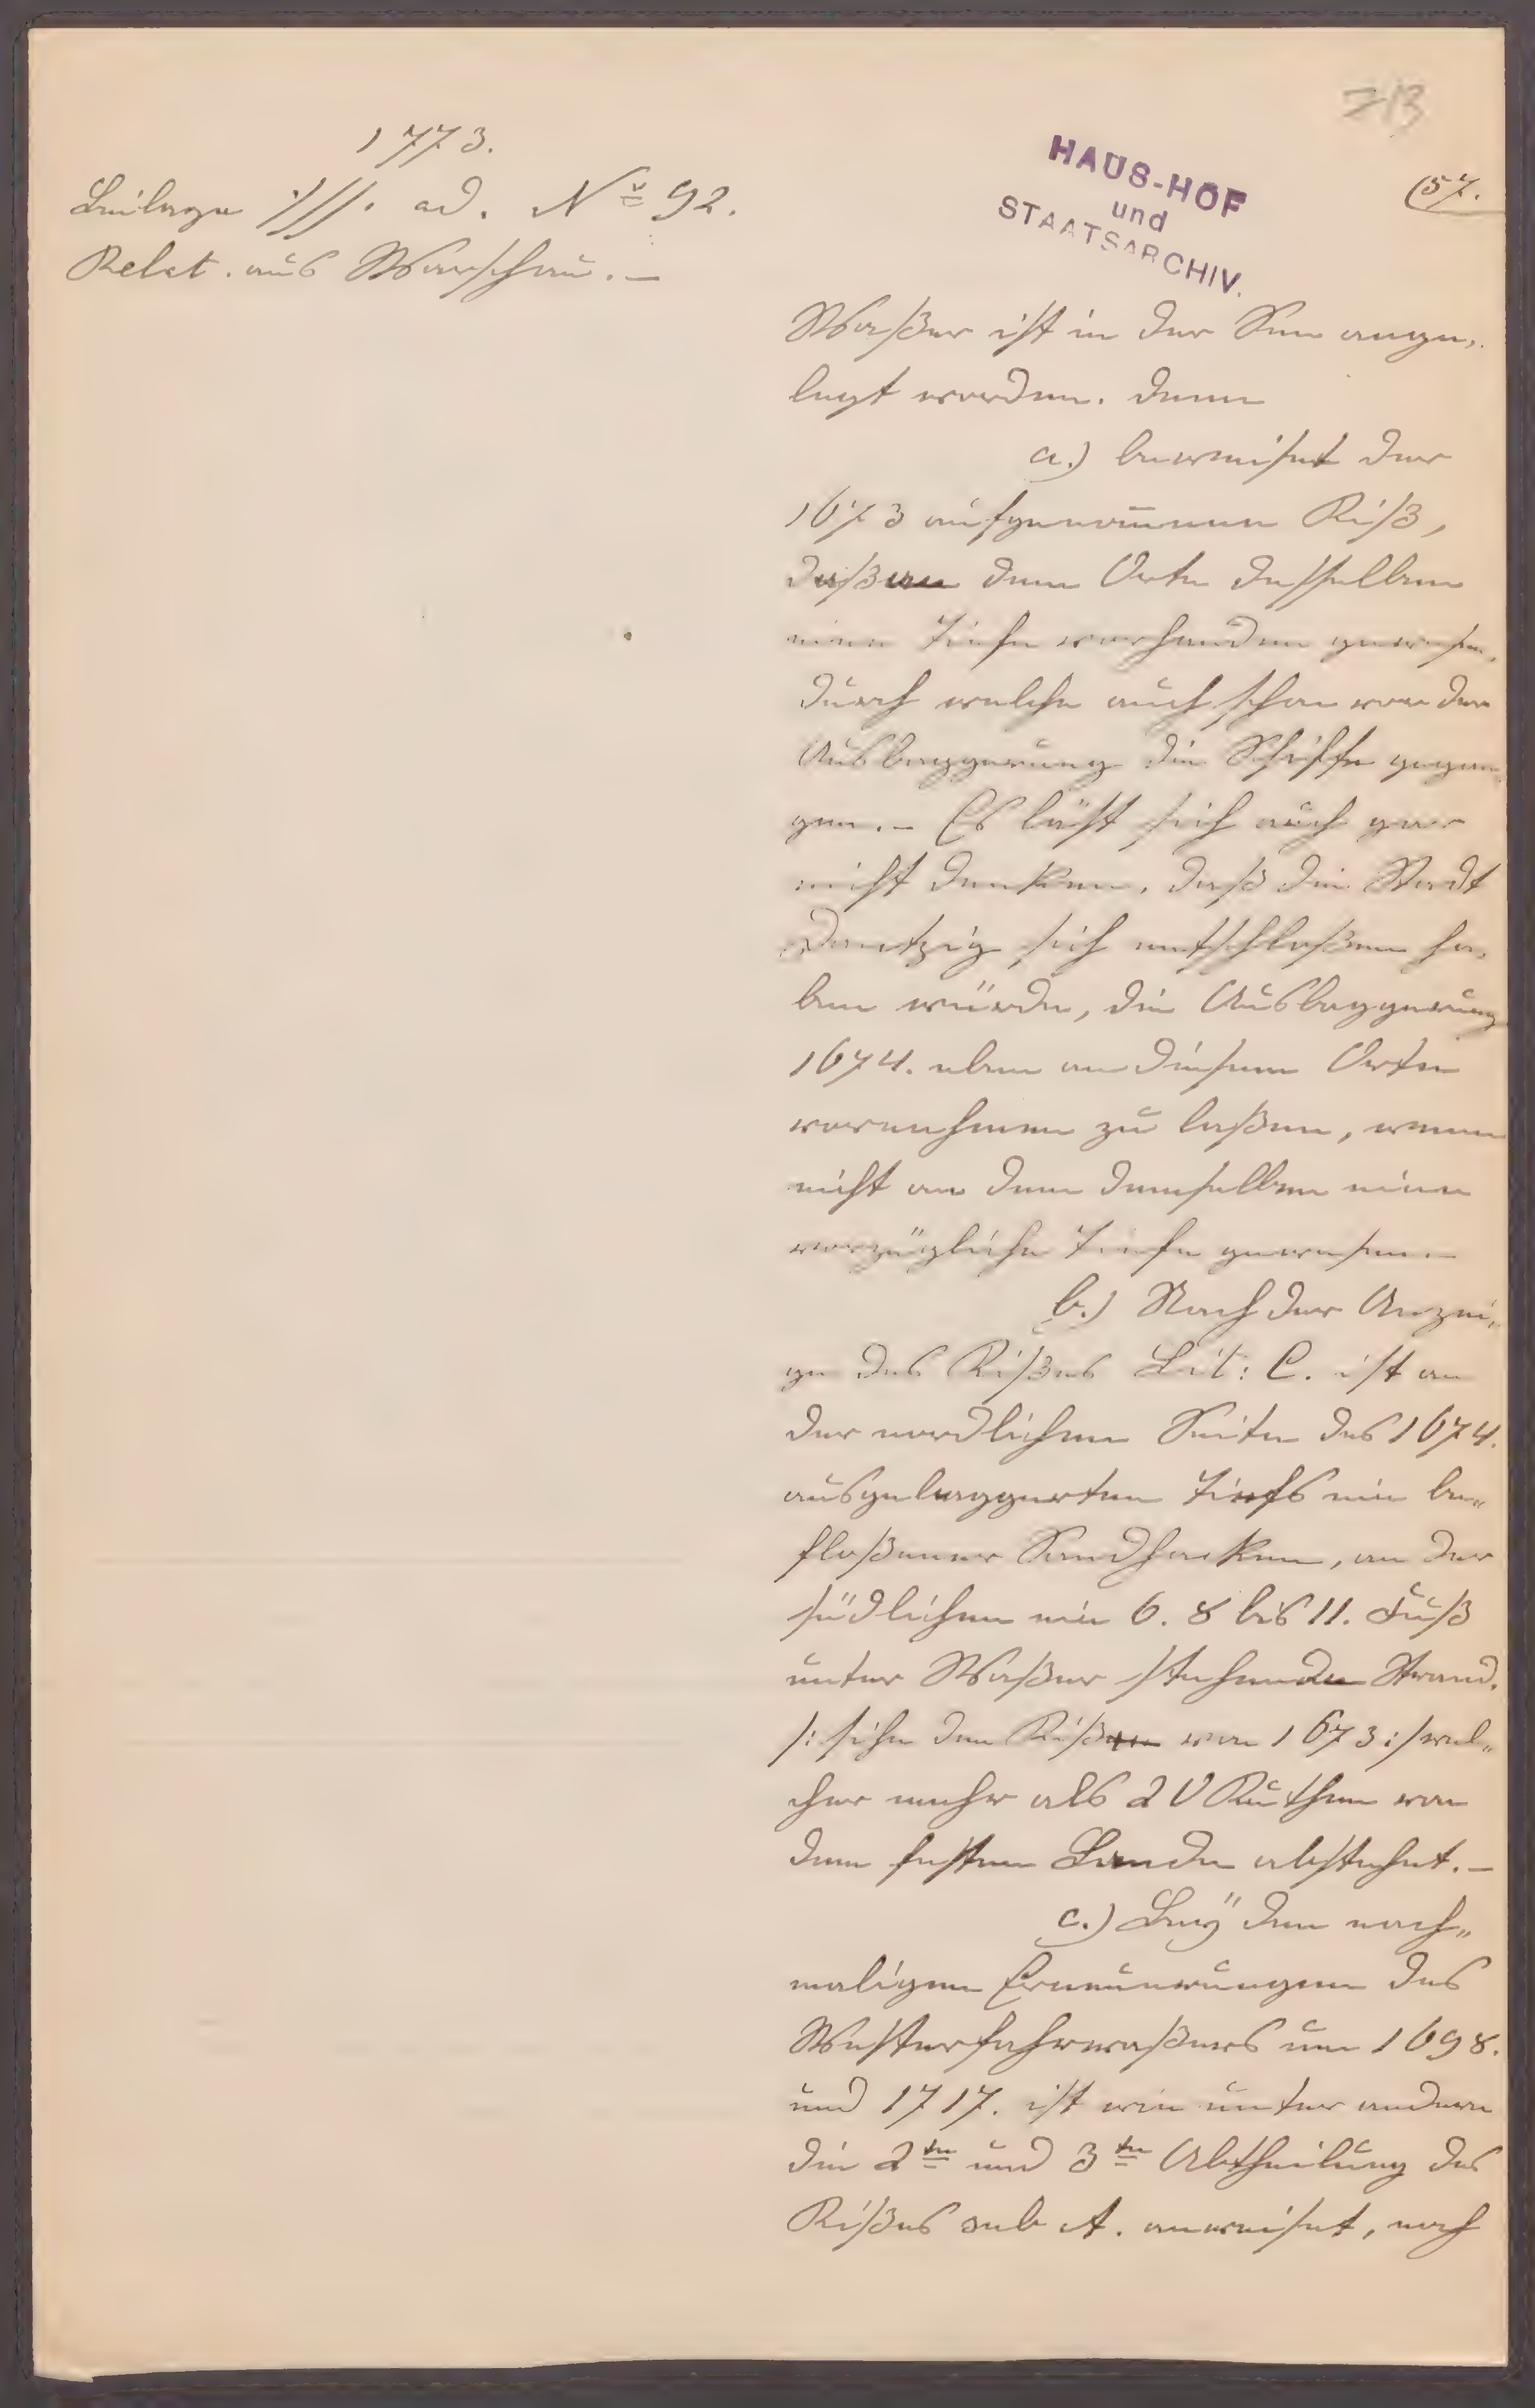 213
1773.
Beilage ·///. ad. No 92.
Relat. aus Warschau. –
HAUS-HOF
und
STAATSARCHIV.
(57.
Waßer ist in der See ange„
legt worden. denn
a.) beweiset der
1673 aufgenom̅enen Riß,
daß an dem Orte desselben
eine Tiefe vorhanden gewesen,
durch welche auch schon vor der
Ausbaggerung die Schiffe gegan„
gen. – Es läßt sich auch gar
nicht denken, daß die Stadt
Dantzig sich entschloßen ha„
ben würde, die Ausbaggerung
1674. eben an diesem Orte
vornehmen zu laßen, wenn
nicht an dem demselben eine
vorzügliche Tiefe gewesen. –
b.) Nach der Anzei„
ge des Rißes Lit: C. ist an
der nordlichen Seite des 1674.
ausgebaggerten Tiefs ein be„
floßener Sandhacken, an der
südlichen ein 6. 8 bis 11. Fuß
unter Waßer stehende Strand.
/: siehe den Riß von 1673 :/ wel„
cher mehr als 20 Ruthen von
dem festen Lande abstehet. –
c.) Beÿ den nach„
maligen Erneuerungen des
Westerfahrwaßers um 1698.
und 1717. ist wie unter andern
die 2te und 3te Abtheilung des
Rißes sub A. anweiset, noch